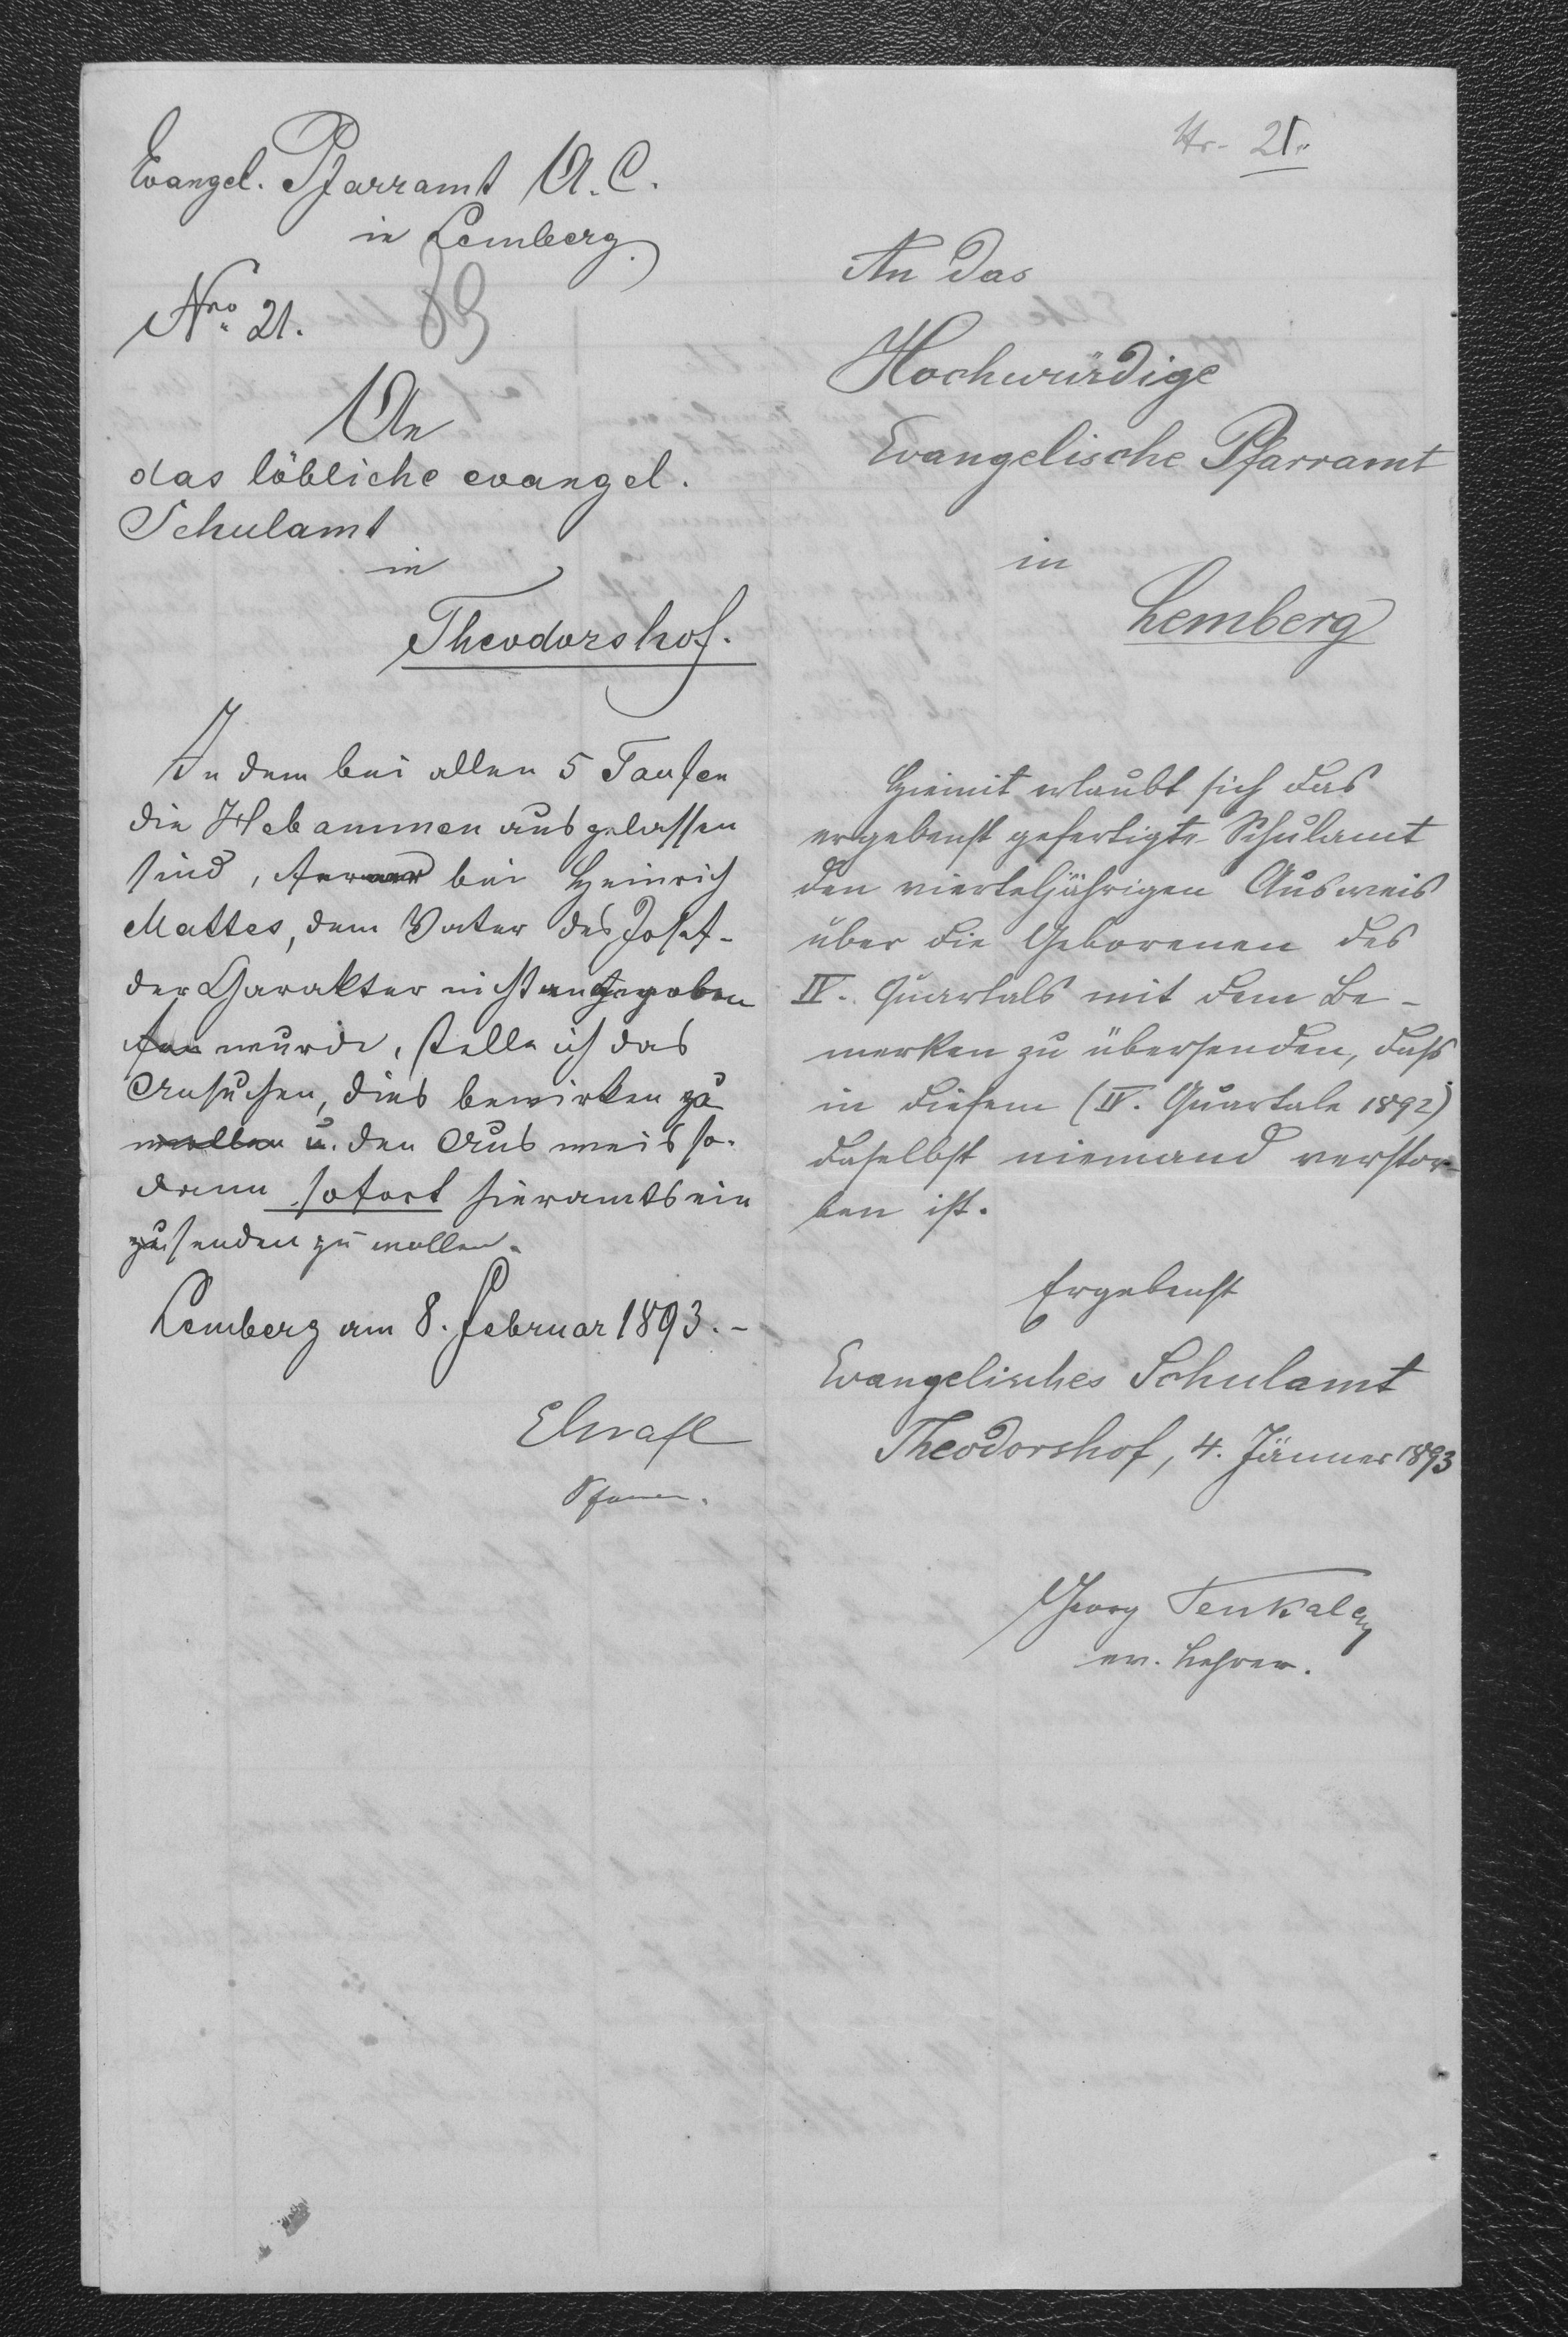 Evangel. Pfarramt A. C.
in Lemberg.
Nro. 21.
An
das löbliche evangel.
Schulamt
in
Theodorshof.
In dem bei allen 5 Taufen
die Hebammen ausgelassen
sind, ferner bei Heinrich
Mattes, dem Vater des Josef-
der Charakter nicht angegeben
wurde, stelle ich das
Ansuchen, dies bewirken zu
wollen u. den Ausweis so-
dann sofort hieramts ein
zusenden zu wollen.
Lemberg am 8. Februar 1893.-
Pfarrer.
Nr. 21.
An das
Hochwürdige
Evangelische Pfarramt
in
Lemberg
Hiemit erlaubt sich das
ergebenst gefertigte Schulamt
den vierteljährigen Ausweis
über die Geborenen des
IV. Quartals mit dem Be-
merken zu übersenden, daß
in diesem (IV. Quartale 1892)
daselbst niemand verstor-
ben ist.
Ergebenst
Evangelisches Schulamt
Theodorshof, 4. Jänner 1893
Georg
ev. Lehrer.